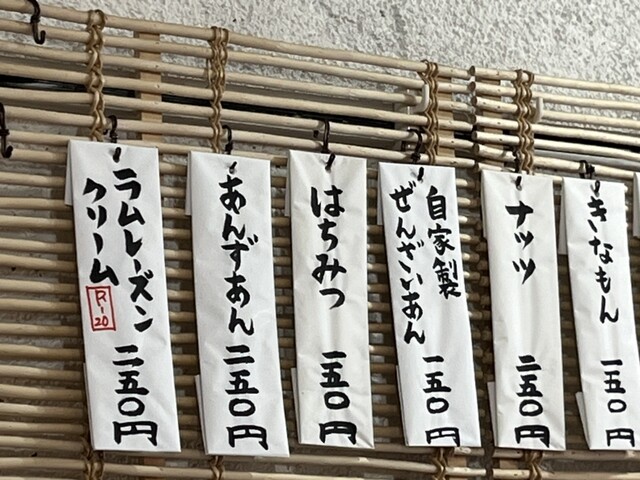 きなもん
一五〇円
ナッツ
二五〇円
自家製
ぜんざいあん
一五〇円
はちみつ
一五〇円
あんずあん
二五〇円
ラムレーズン
クリーム
R-20
二五〇円